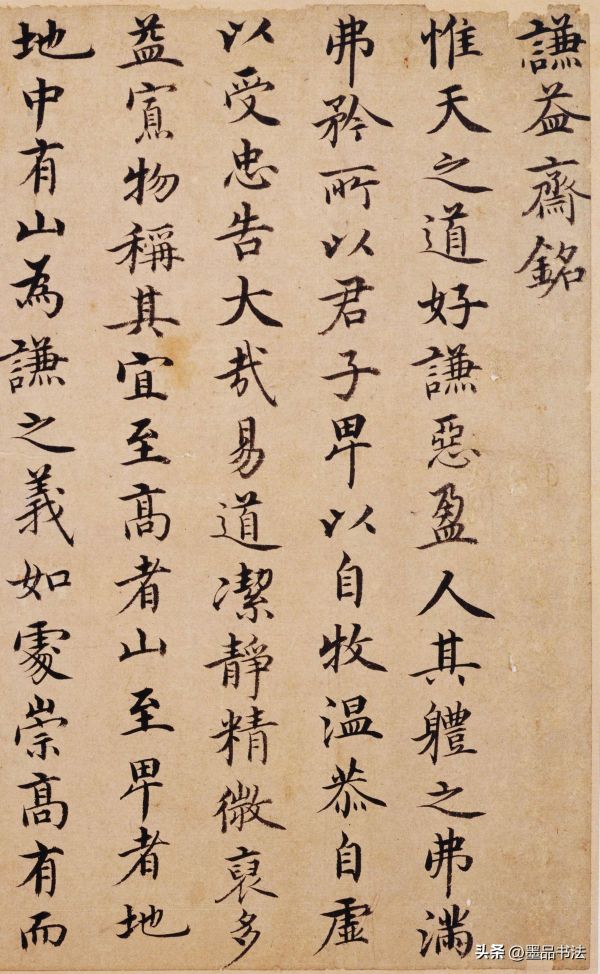 謙益齋銘
惟天之道好謙惡盈人其軆之弗滿
弗矜所以君子卑以自牧温恭自虛
以受忠告大哉易道潔靜精微裒多
益寡物稱其宜至高者山至卑者地
地中有山為謙之義如處崇高有而
头条 @墨品书法